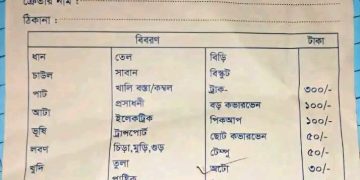 ক্রেতার নাম :
ঠিকানা :
বিবরণ টাকা
ধান তেল বিড়ি
চাউল সাবান বিস্কুট
পাট খালি বস্তা/কম্বল ট্রাক- ৩০০/-
আটা প্রসাধনী বড় কভারভেন ১০০/-
ভূষি ইলেকট্রিক পিকআপ ১০০/-
লবণ ট্রান্সপোর্ট ছোট কভারভেন ৫০/-
খুদি চিড়া,মুড়ি,গুড় টেম্পু ৫০/-
তুলা অটো ৩০/-
প্লাষ্টিক